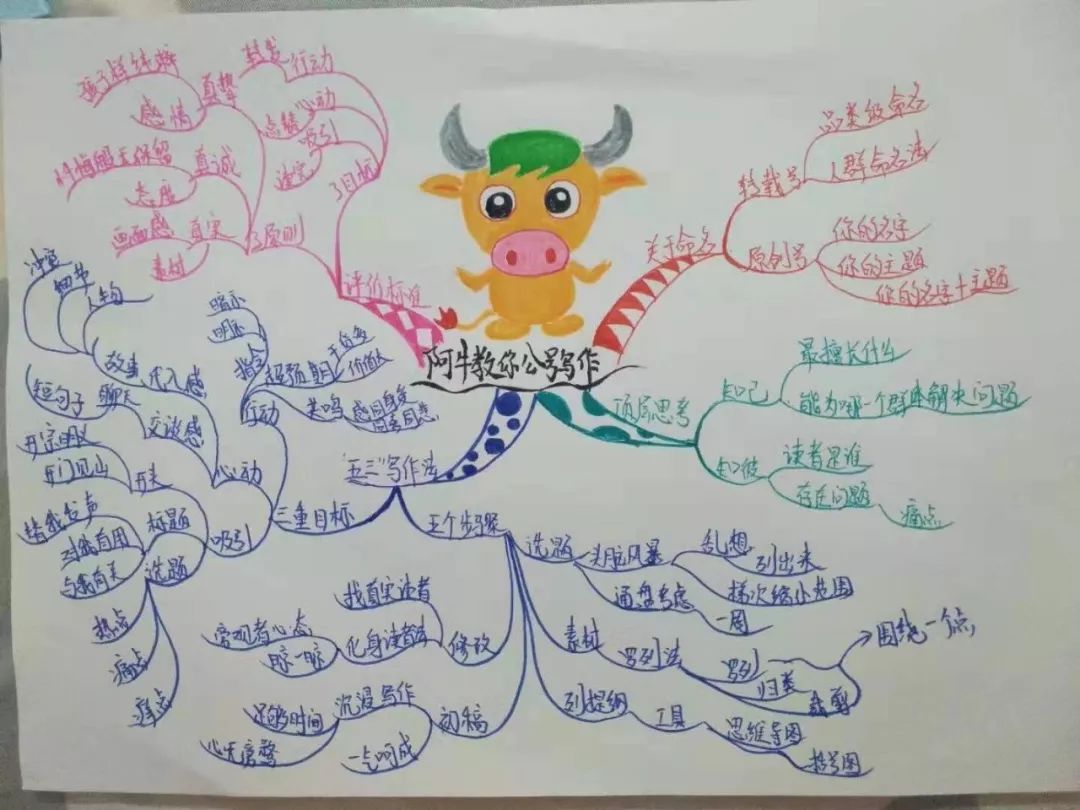 阿牛教你公号写作
关于命名
转载号
品类级命名
人群命名法
原创号
你的名字
你的主题
你的名字+主题
顶层思考
知己
最擅长什么
能为哪一个群体解决问题
知彼
读者是谁
存在问题
痛点
"五三"写作法
五个步骤
选题
头脑风暴
乱想
列出来
通盘考虑
梯次缩小范围
一周
素材
罗列法
罗列
归类
裁剪
围绕一个点
列提纲
工具
思维导图
括号图
初稿
沉浸写作
足够时间
心无旁骛
一气呵成
修改
找真实读者
化身读者法
旁观者心态
瞅一瞅
三重目标
吸引
选题
替我发声
对我有用
与我有关
热点
痛点
痒点
标题
开头
开宗明义
开门见山
心动
交谈感
聊天
短句子
代入感
故事
冲突
细节
人物
行动
指令
暗示
明示
超预期
干货多
价值大
共鸣
感同身受
评价标准
3原则
真实
画面感
素材
真诚
态度
真挚
感情
3目标
吸引
读完
心动
点赞
行动
转发